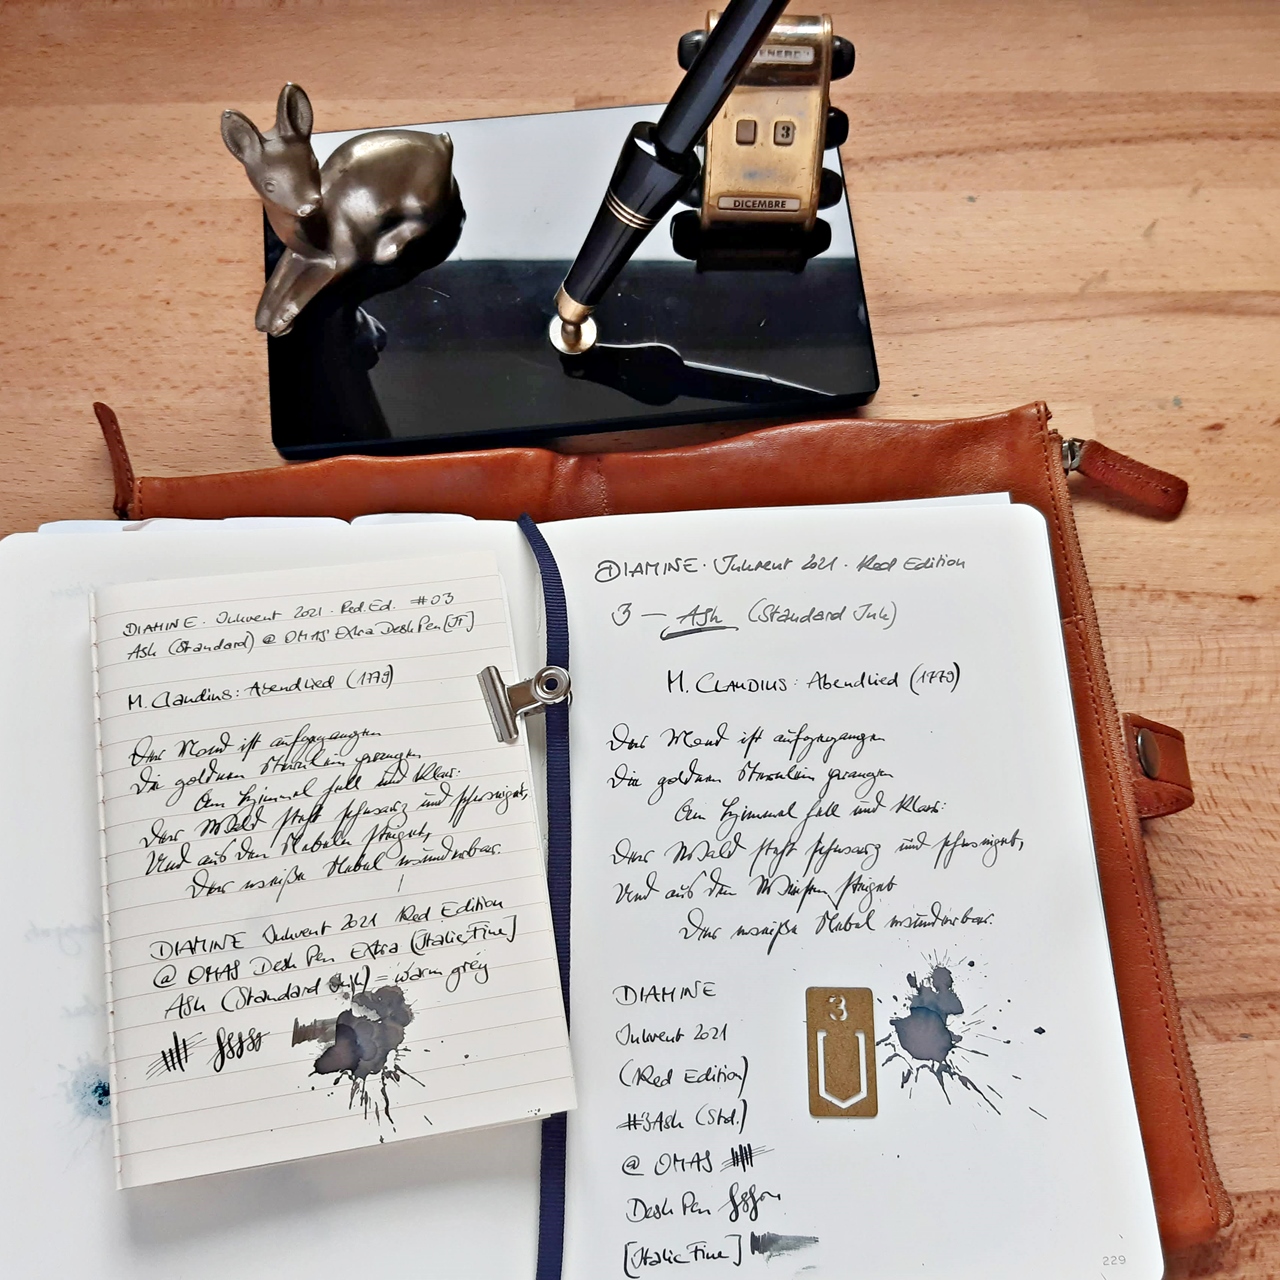 ENERD
3
DICEMBRE
DIAMINE · Inkvent 2021 · Red. Ed. #03
Ash (Standard) @ OMAS Extra Desk Pen [It]
M. Claudius: Abendlied (1779)
Der Mond ist aufgegangen
Die goldnen Sternlein prangen
Am Himmel hell und klar:
Der Wald steht schwarz und schweiget,
Und aus den Nebeln steiget,
Der weiße Nebel wunderbar.
DIAMINE Inkvent 2021 Red Edition
@ OMAS Desk Pen Extra [Italic, Fine]
Ash (Standard Ink) = warm grey
DIAMINE · Inkvent 2021 · Red Edition
3 — Ash (Standard Ink)
M. CLAUDIUS: Abendlied (1779)
Der Mond ist aufgegangen
Die goldnen Sternlein prangen
Am Himmel hell und klar:
Der Wald steht schwarz und schweiget,
Und aus den Wiesen steiget
Der weiße Nebel wunderbar.
DIAMINE
Inkvent 2021
(Red Edition)
#3 Ash (Std.)
@ OMAS
Desk Pen
[Italic, Fine]
3
229